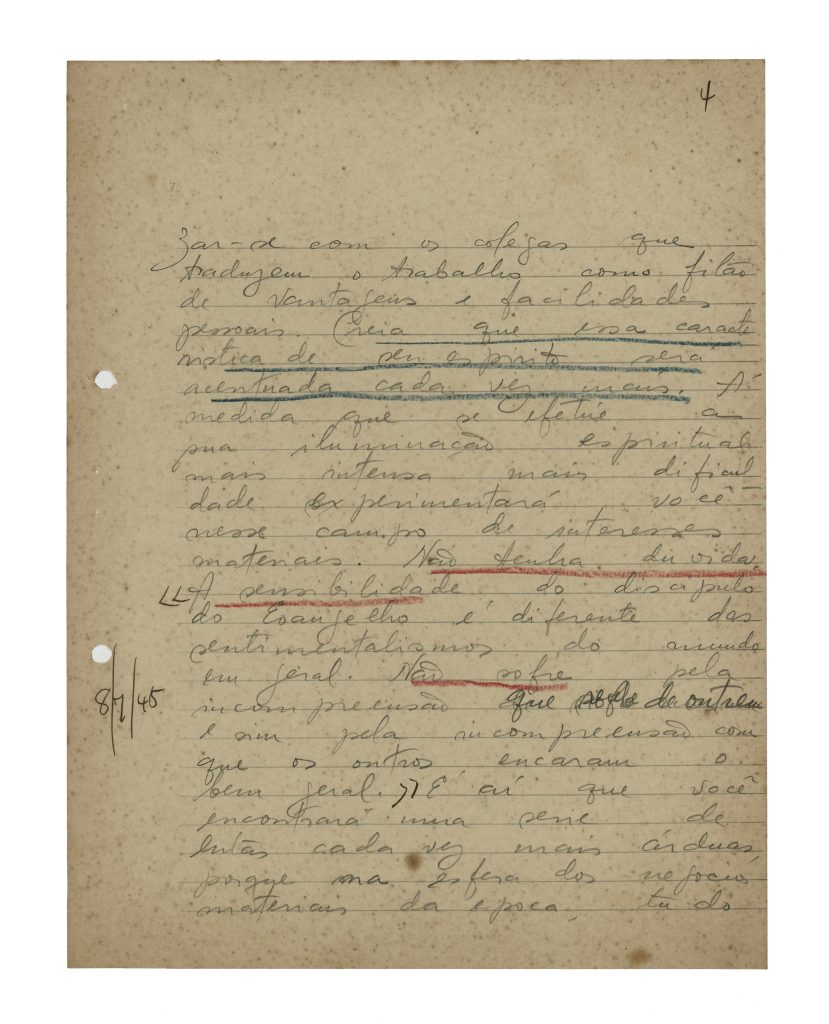 4
zar-se com os colegas que
traduzem o trabalho como filão
de vantagens e facilidades
pessoais. Creia que essa caracte
rística de seu espirito será
acentuada cada vez mais. Á
medida que se efetúe a
sua iluminação espiritual
mais intensa mais dificul
dade experimentará você
nesse campo de interesses
materiais. Não tenha duvida.
<< A sensibilidade do discipulo
do Evangelho é diferente dos
sentimentalismos do mundo
em geral. Não sofre pela
8/7/45
incompreensão que de outrem
e sim pela incompreensão com
que os outros encaram o
bem geral. >> É aí que você
encontrará uma serie de
lutas cada vez mais árduas,
porque na esfera dos negocios
materiais da epoca, tudo